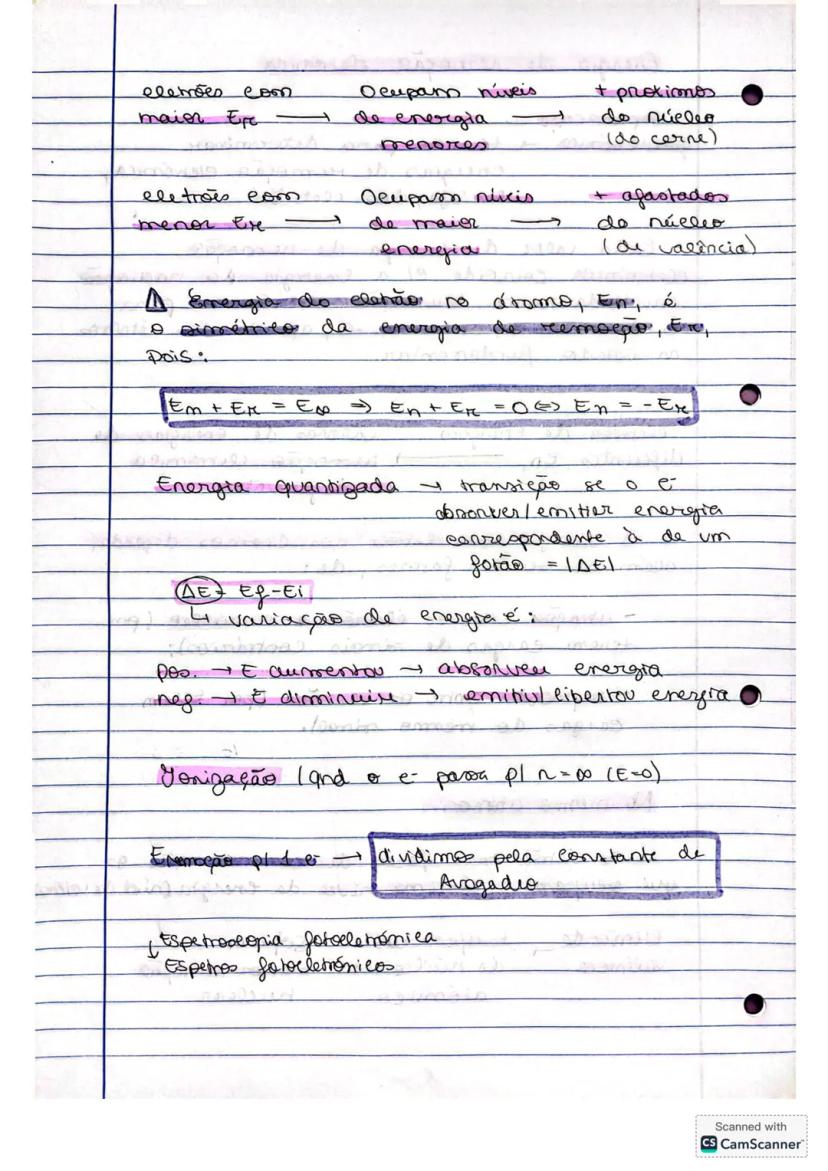 eletrões com Ocupam níveis + proximos
maior Er → de energia → do núcleo
menores (do cerne)
eletrões com Ocupam níveis + afastados
menor Er → de maior → do núcleo
energia (de valência)
⚠ Energia do eletrão no átomo, En, é
o simétrico da energia de remoção, Er,
pois:
En + Er = E∞ => En + Er = 0 <=> En = -Er
Energia quantizada → transição se o e-
absorver/emitir energia
correspondente à de um
fotão = |ΔE|
ΔE = Ef - Ei
↳ variação de energia é:
pos. → E aumentou → absolveu energia
neg. → E diminuiu → emitiu/libertou energia
Ionização (qnd o e- passa p/ n = ∞ (E=0)
Eremoção p/ 1 e- → dividimos pela constante de
Avogadro
Espetroscopia fotoeletrónica
↓ Espetros fotoeletrónicos
Scanned with
CS CamScanner